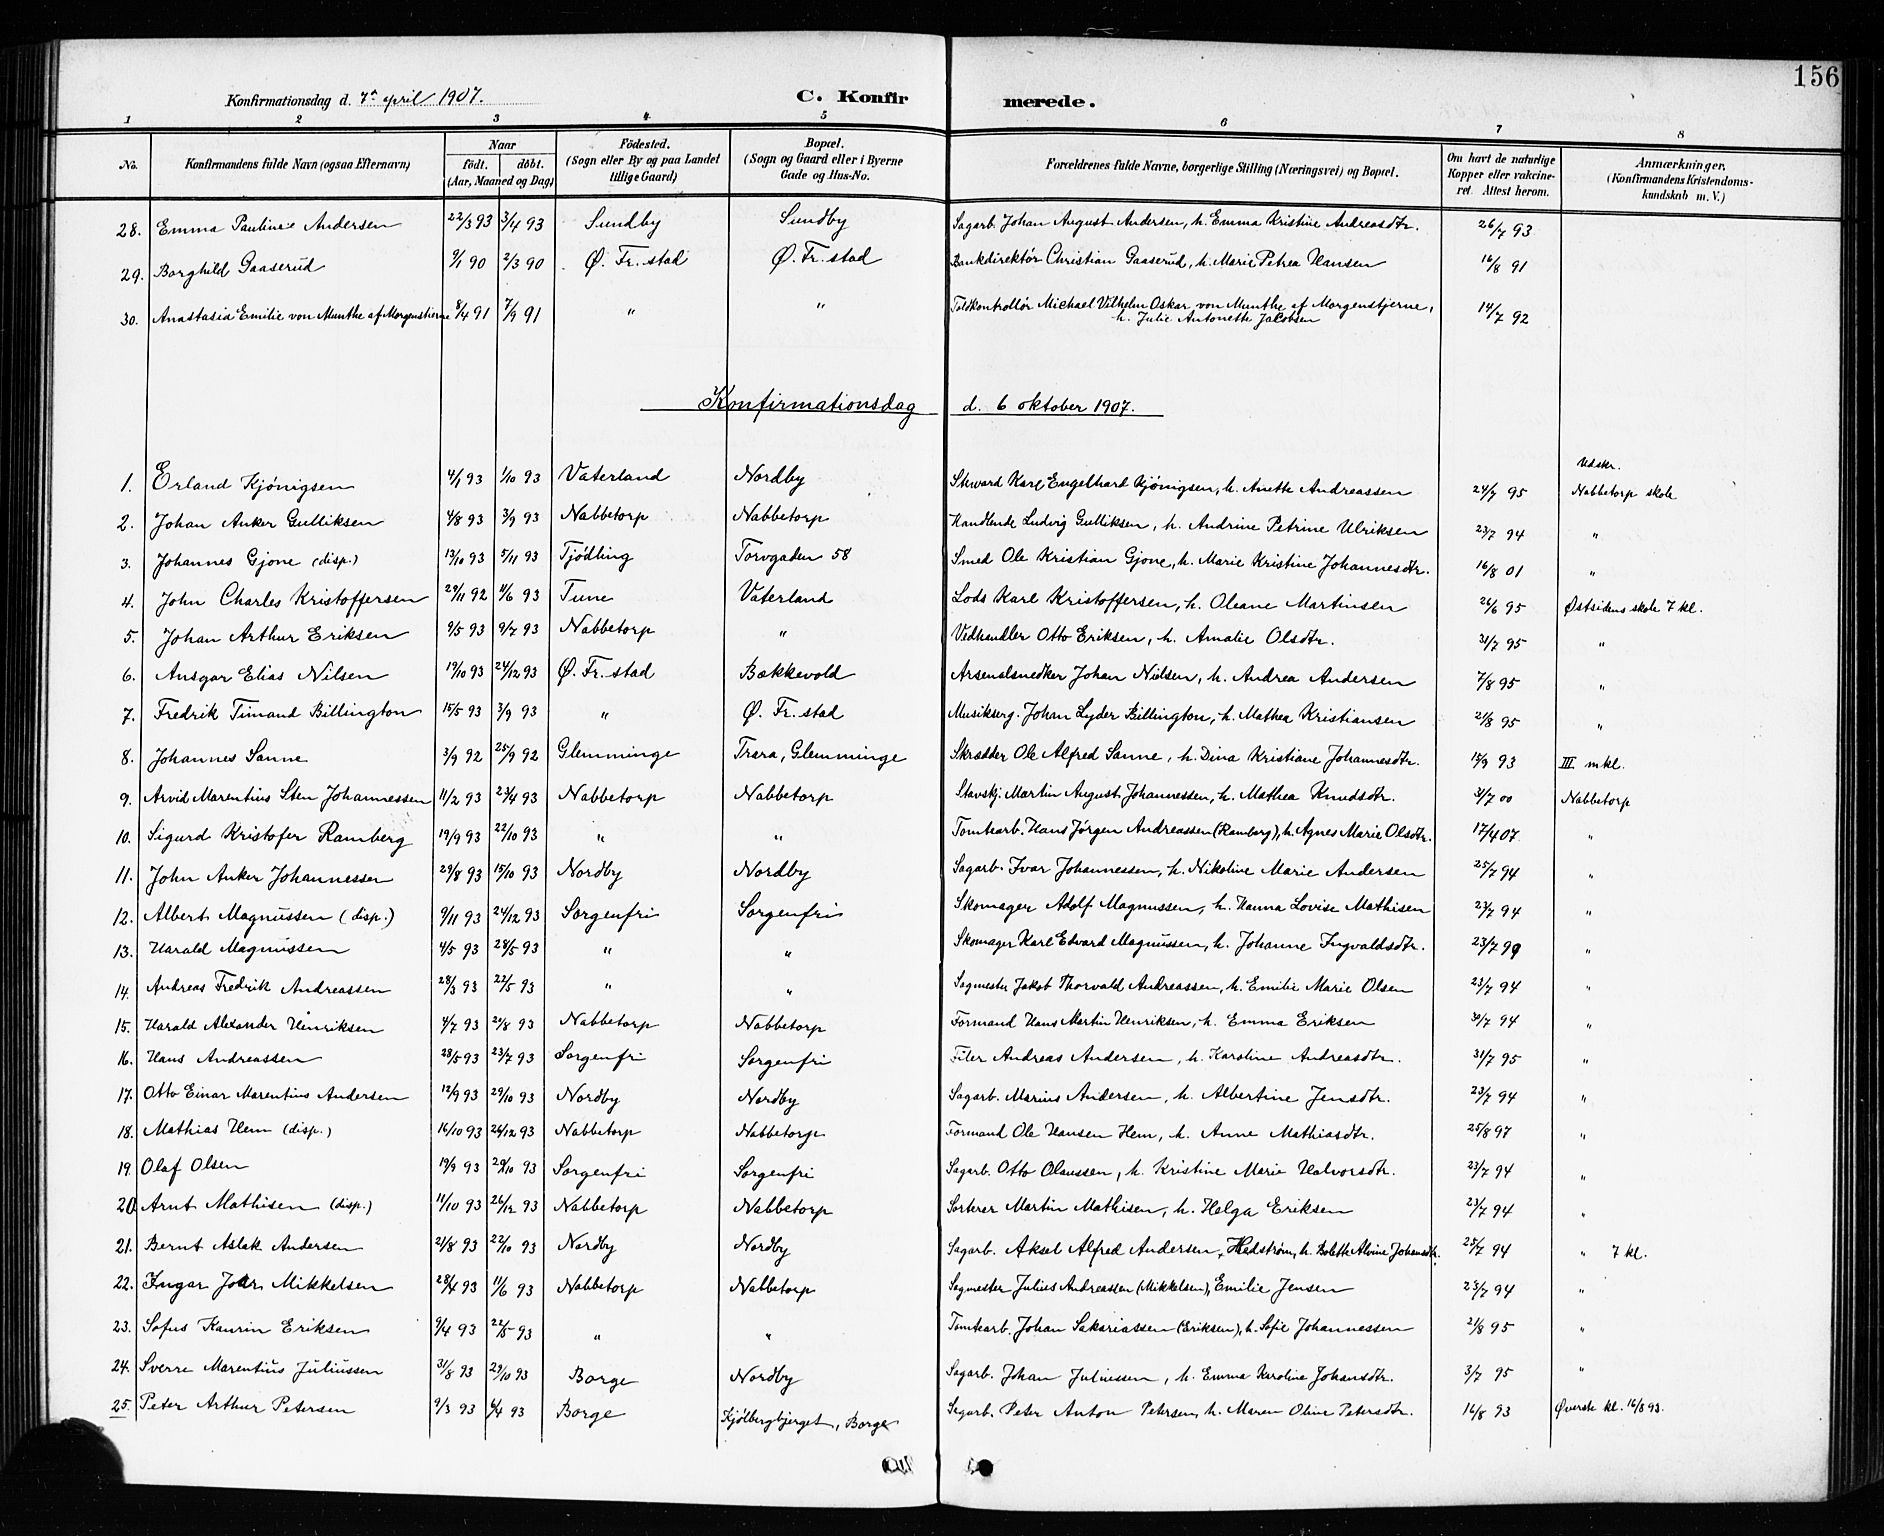 156
Konfirmationsdag d. 7de april 1907. C. Konfirmerede.
1 2 3 4 5 6 7 8
No. Konfirmandens fulde Navn (ogsaa Efternavn) Naar født. døbt. (Aar, Maaned og Dag) Födested. (Sogn eller By og paa Landet tillige Gaard) Bopæl. (Sogn og Gaard eller i Byerne Gade og Hus-No. Forældrenes fulde Navne, borgerlige Stilling (Næringsvei) og Bopæl. Om havt de naturlige Kopper eller vakcineret. Attest herom. Anmærkninger. (Konfirmandens Kristendomskundskab m. V.)
28. Emma Pauline Andersen 22/3 93 3/4 93 Sundby Sundby Sagarb. Johan August Andersen, h. Emma Kristine Andreasdtr. 26/7 93
29. Borghild Gaaserud 9/1 90 2/3 90 Ø. Fr. stad Ø. Fr. stad Bankdirektør Christian Gaaserud, h. Marie Petrea Hansen 16/8 91
30. Anastasia Emilie von Munthe af Morgenstierne 8/4 91 7/9 91 " " Toldkontrollør Michael Vilhelm Oskar von Munthe af Morgenstjerne, h. Julie Antonette Jacobsen 14/7 92
Konfirmationsdag d. 6 oktober 1907.
1. Erland Kjönigsen 4/9 93 1/10 93 Vaterland Nordby Stuward Karl Engelhard Kjönigsen, h. Anette Andreassen 24/7 95 Udskr. Nabbetorp skole
2. Johan Anker Gulliksen 4/8 93 3/9 93 Nabbetorp Nabbetorp Handlende Ludvig Gulliksen, h. Andrine Petrine Ulriksen 23/7 94 "
3. Johannes Gjone (disp.) 13/10 93 5/11 93 Tjödling Torvgaden 58 Smed Ole Kristian Gjone, h. Marie Kristine Johannesdtr. 16/8 01 "
4. John Charles Kristoffersen 29/11 92 4/6 93 Tune Vaterland Lods Karl Kristoffersen, h. Oleane Martinsen 26/6 95 Østsidens skole 7 kl.
5. Johan Arthur Eriksen 9/5 93 9/7 93 Nabbetorp " Vedhandler Otto Eriksen, h. Amalie Olsdtr. 31/7 95 "
6. Ansgar Elias Nilsen 19/10 93 24/12 93 Ø. Fr. stad Bækkevold Arsenalsnedker Johan Nielsen, h. Andrea Andersen 7/8 95 "
7. Fredrik Timand Billington 15/5 93 3/9 93 " Ø. Fr. stad Musikserg. Johan Lyder Billington, h. Mathea Kristiansen 21/8 95 "
8. Johannes Sanne 3/9 92 25/9 92 Glemminge Trara, Glemminge Skrædder Ole Alfred Sanne, h. Dina Kristiane Johannesdtr. 15/9 93 III mkl.
9. Arvid Marentius Sten Johannessen 11/2 93 23/4 93 Nabbetorp Nabbetorp Stavskj. Martin August Johannessen, h. Mathea Knudsdtr. 3/7 00 Nabbetorp
10. Sigurd Kristofer Ramberg 19/9 93 22/10 93 " " Tomtearb. Hans Jørgen Andreassen (Ramberg), h. Agnes Marie Olsdtr. 17/4 07 "
11. John Anker Johannessen 29/8 93 15/10 93 Nordby Nordby Sagarb. Ivar Johannessen, h. Nikoline Marie Andersen 25/7 94 "
12. Albert Magnussen (disp.) 9/11 93 24/12 93 Sorgenfri Sorgenfri Skomager Adolf Magnussen, h. Hanna Lovise Mathisen 23/7 94 "
13. Harald Magnussen 4/5 93 28/5 93 " " Skomager Karl Edvard Magnussen, h. Johanne Ingvaldsdtr. 23/7 99 "
14. Andreas Fredrik Andreassen 28/3 93 22/5 93 " " Sagmester Jakob Thorvald Andreassen, h. Emilie Marie Olsen 23/7 94 "
15. Harald Alexander Henriksen 4/7 93 21/8 93 Nabbetorp Nabbetorp Formand Hans Martin Henriksen, h. Emma Eriksen 30/7 94 "
16. Hans Andreassen 28/5 93 23/7 93 Sorgenfri Sorgenfri Filer Andreas Andersen, h. Karoline Andreasdtr. 31/7 95 "
17. Otto Einar Marentius Andersen 12/9 93 29/10 93 Nordby Nordby Sagarb. Marius Andersen, h. Albertine Jensdtr. 23/7 94 "
18. Mathias Hem (disp.) 16/10 93 26/12 93 Nabbetorp Nabbetorp Formand Ole Hansen Hem, h. Anne Mathiasdtr. 25/8 97 "
19. Olaf Olsen 19/9 93 29/10 93 Sorgenfri Sorgenfri Sagarb. Otto Olaussen, h. Kristine Marie Halvorsdtr. 23/7 94 "
20. Arnt Mathisen (disp.) 11/10 93 26/12 93 Nabbetorp Nabbetorp Sorterer Martin Mathisen, h. Helga Eriksen 23/7 94 "
21. Bernt Aslak Andersen 21/8 93 22/10 93 Nordby Nordby Sagarb. Aksel Alfred Andersen, Hedstrøm, h. Bolette Alvine Johansdtr. 25/7 94 " 7 kl.
22. Ingar Joar Mikkelsen 28/4 93 11/6 93 Nabbetorp Nabbetorp Sagmester Julius Andreassen (Mikkelsen), Emilie Jensen 23/7 94 "
23. Sofus Kaurin Eriksen 9/4 93 22/5 93 " " Tomtearb. Johan Sakariassen (Eriksen), h. Sofie Johannessen 21/8 95 "
24. Sverre Marentius Juliussen 31/8 93 29/10 93 Borge Nordby Sagarb. Johan Juliussen, h. Emma Karoline Johansdtr. 3/7 95 "
25. Peter Arthur Petersen 9/3 93 4/4 93 Borge Kjölbergbjerget, Borge Sagarb. Peter Anton Petersen, h. Maren Oline Petersdtr. 16/8 93 Øverste kl. 16/8 93.